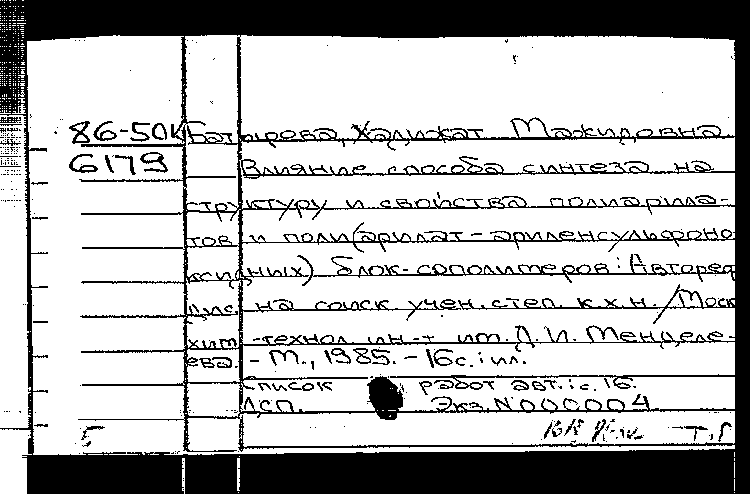 86-50к Батырова, Халижат Мажидовна
6179 Влияние способа синтеза на
структуру и свойства полиарила-
тов и поли(арилат-ариленсульфоно
ксидных) блок-сополимеров: Автореф
дис. на соиск учен. степ. к.х.н. / Моск
хим.-технол ин-т им. Д. И. Менделе-
ева. - М., 1985. - 16 с.: ил.
Список работ авт.: с. 16.
ДСП. Экз. N 000004
5 Т. Г